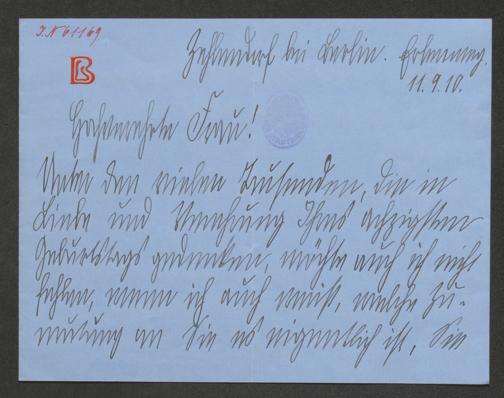 I. N 61169
B
Zehlendorf bei Berlin.
11. 9. 10.
Hochverehrte Frau!
Unter den vielen Tausenden, die in
Liebe und Verehrung Ihres achzigsten
Geburtstags gedenken, möchte auch ich nicht
fehlen, wenn ich auch weiß, welche Zu-
mutung an Sie es eigentlich ist, Sie